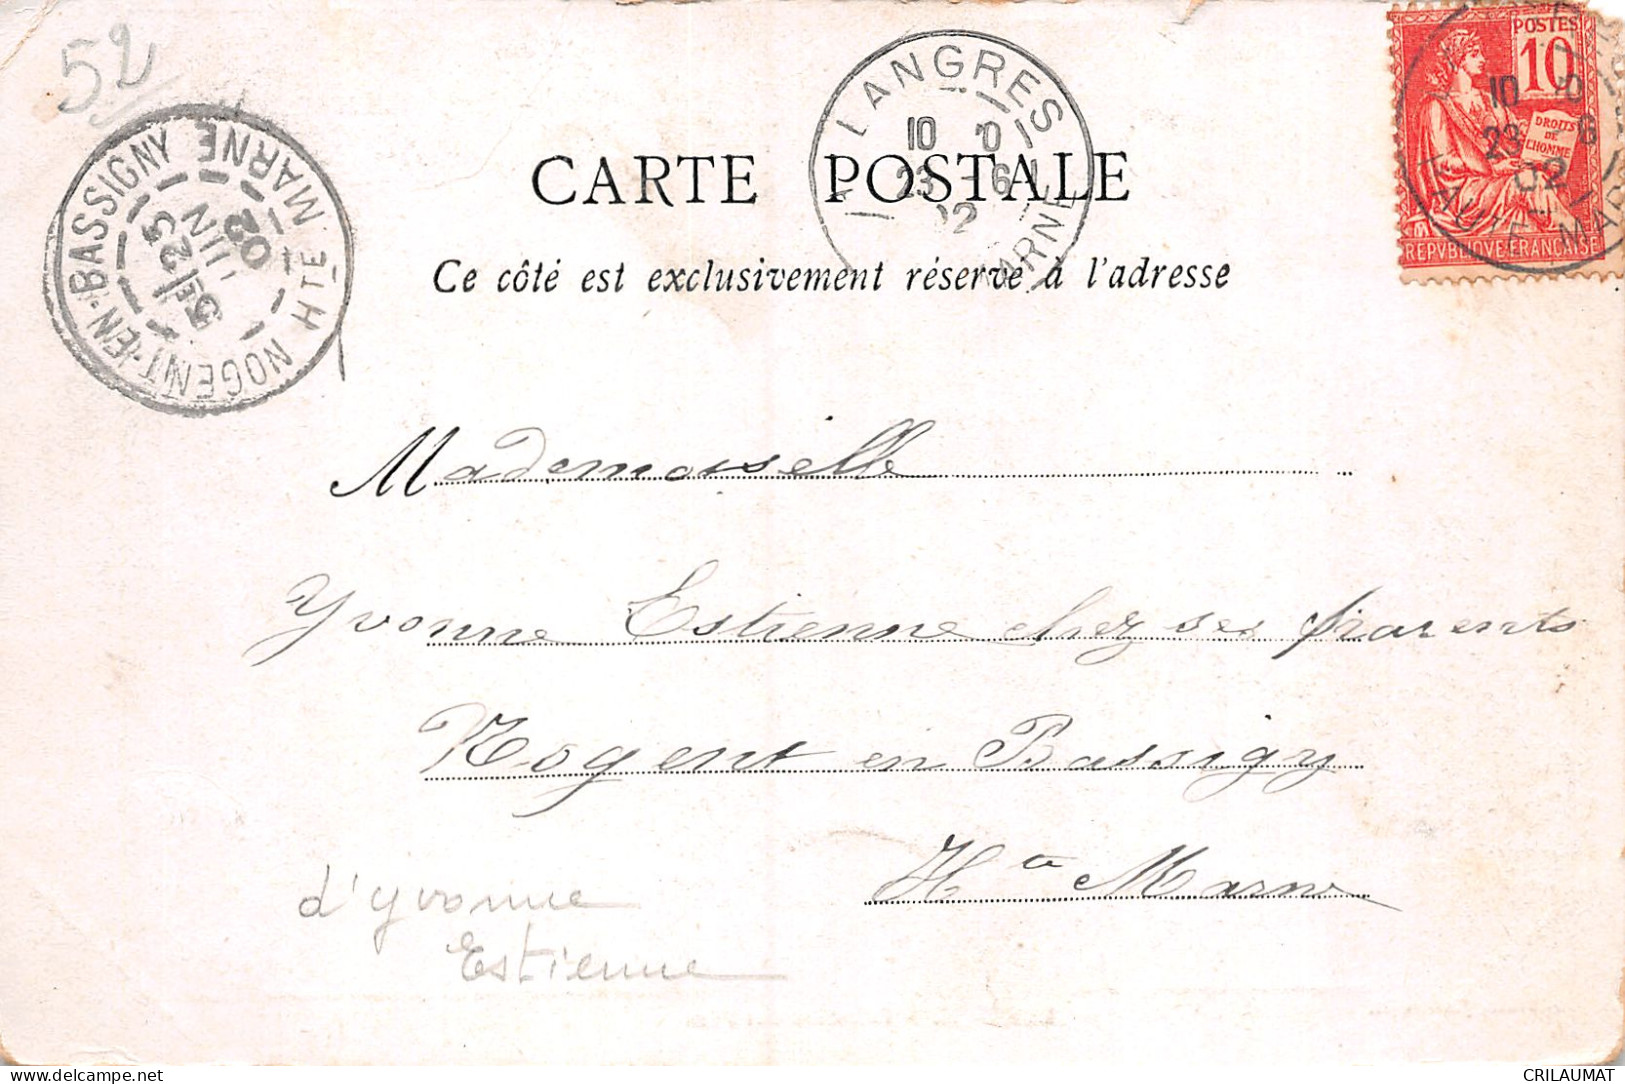 52
LANGRES
10
23 6
02
MARNE
POSTES
10
DROITS
DE
L'HOMME
REPVBLIQVE FRANÇAISE
10
23 6
02
HAUTE-MAR
NOGENT-EN-BASSIGNY
HTE MARNE
5E
23
JUIN
02
CARTE POSTALE
Ce côté est exclusivement réservé à l'adresse
Mademoiselle
Yvonne Estienne chez ses parents
Nogent en Bassigy
Hte Marne
d'Yvonne
Estienne
delcampe.net
CRILAUMAT